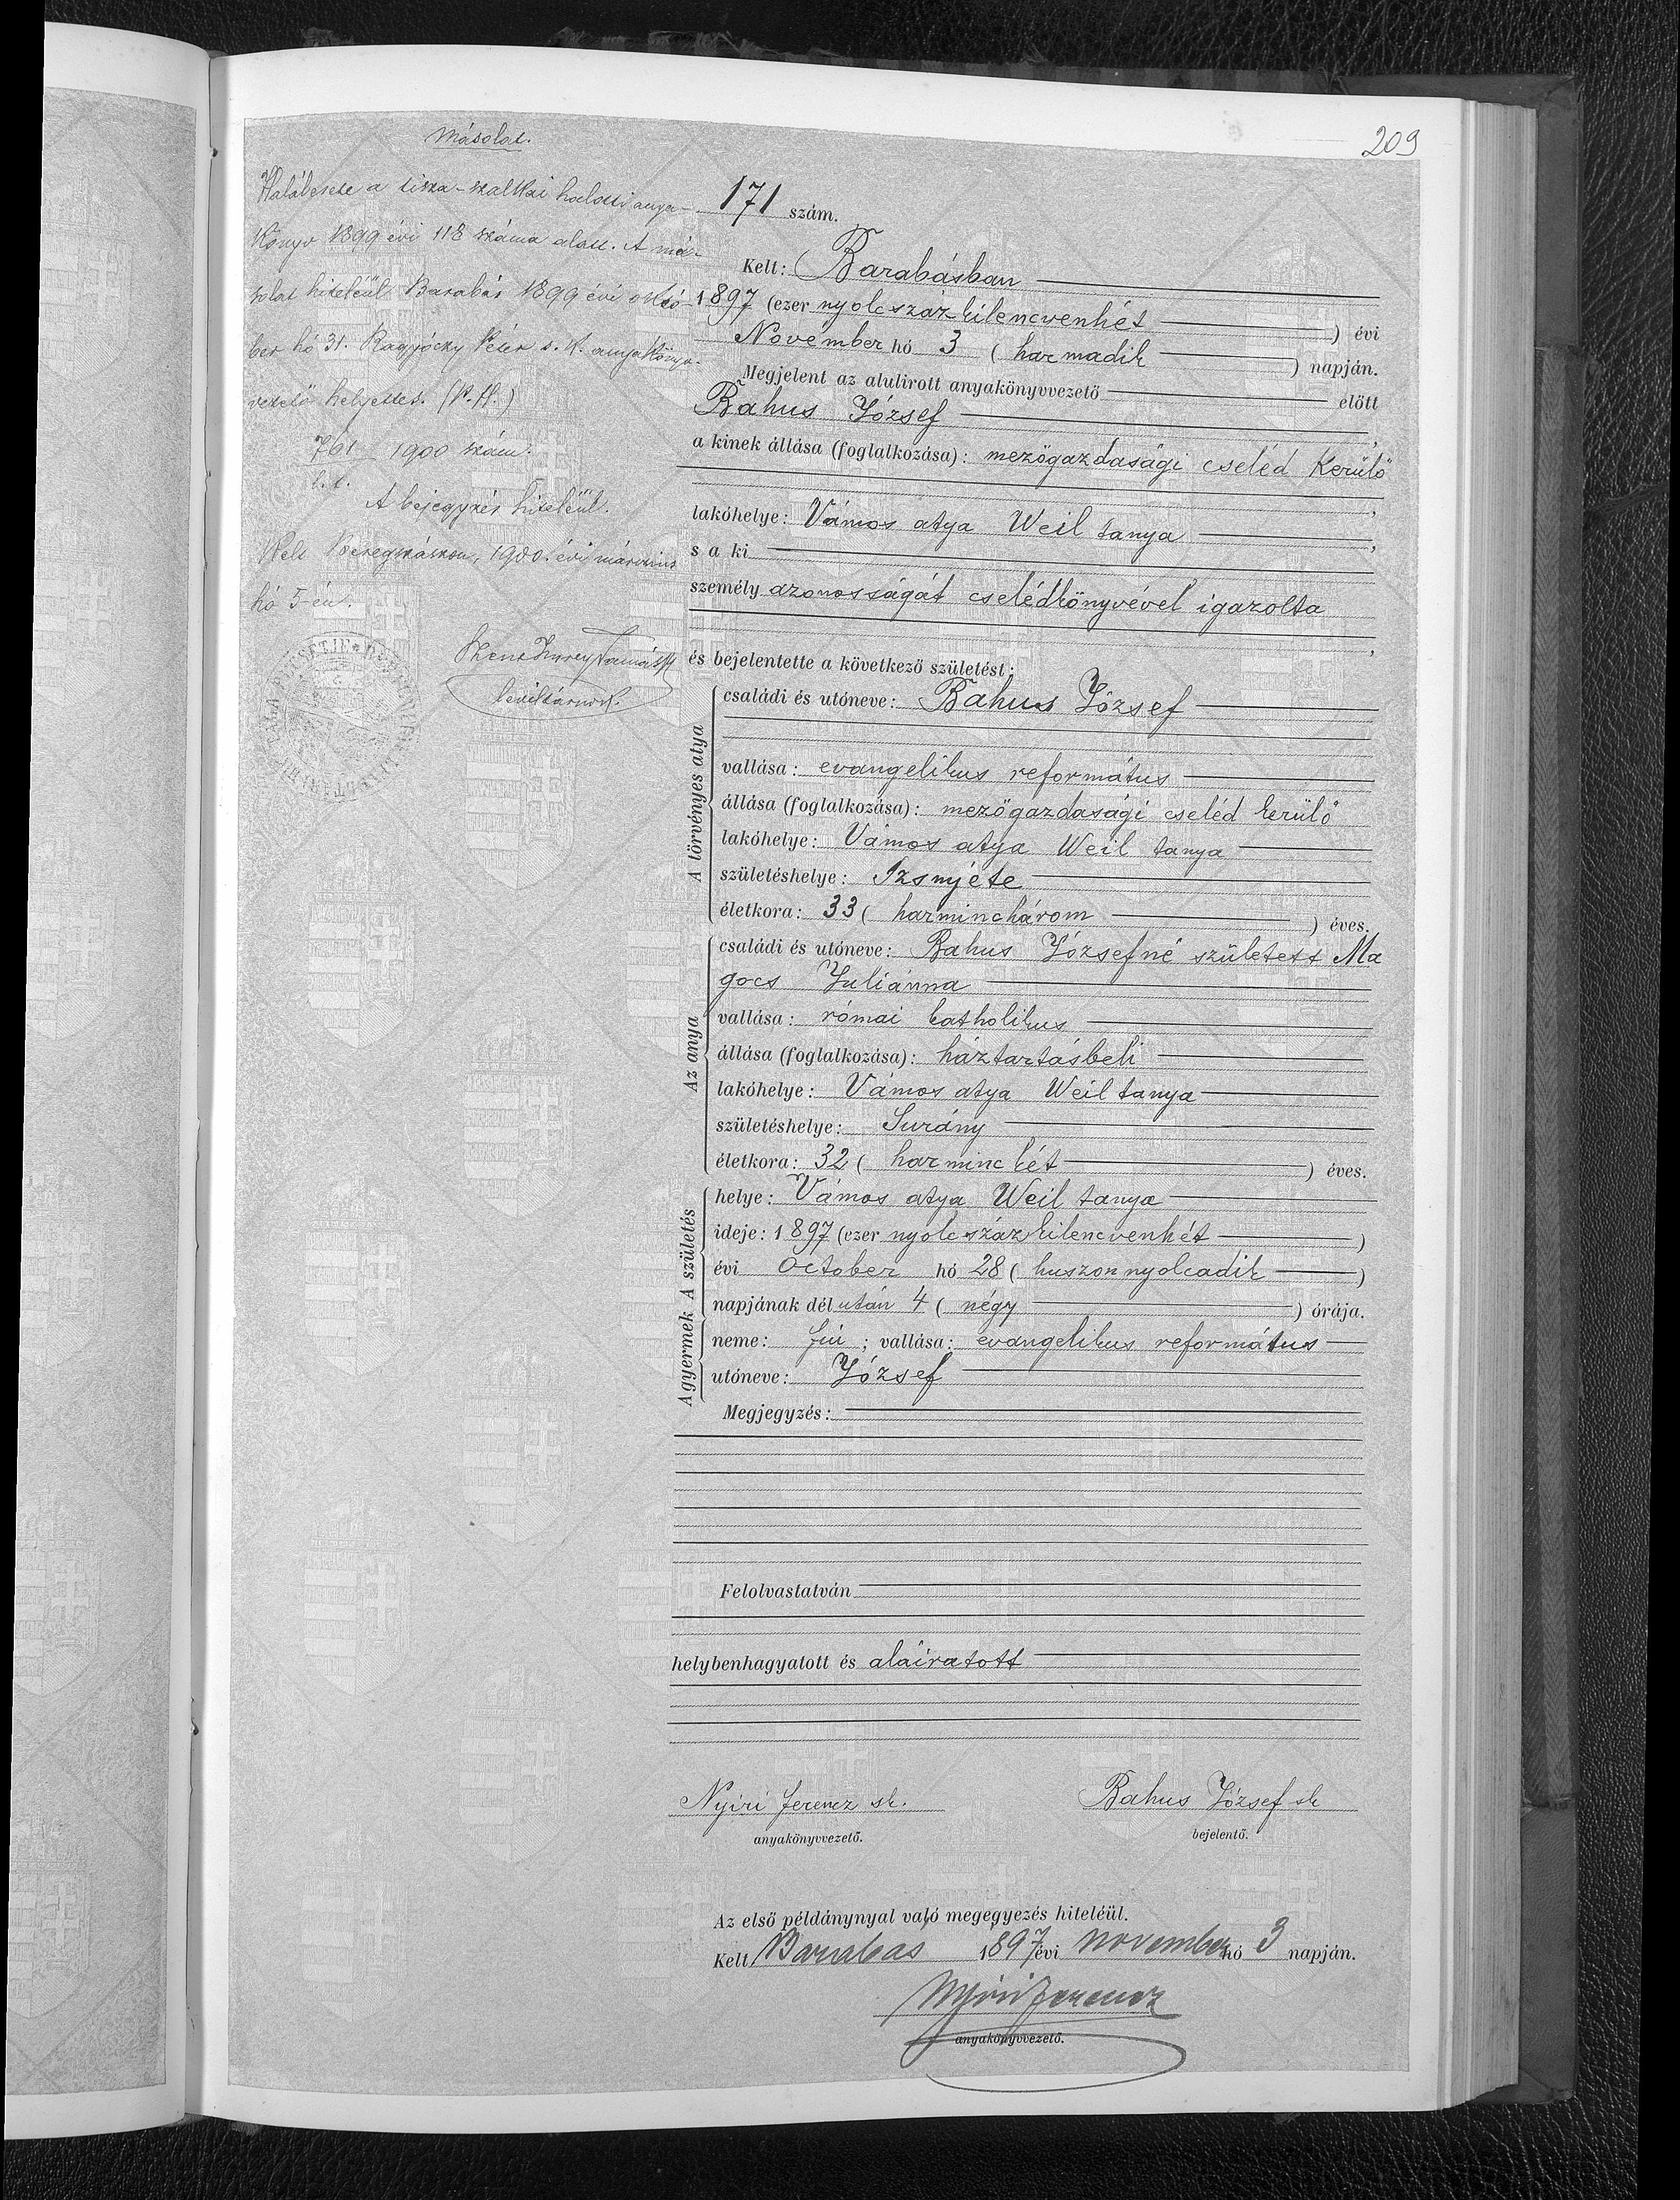 209
Másolat.
Halálesete a tisza-szalkai halotti anya-
könyv 1899 évi 118 száma alatt. A má-
solat hiteléül Barabás 1899 évi októ-
ber hó 31. Ragyóczy Péter s. k. anyakönyv-
vezető helyettes. (P. H.)
761 1900 szám.
A bejegyzés hiteléül.
Kelt Beregszászon, 1900. évi március
hó 5-én.
levéltárnok.
171 szám.
Kelt: Barabásban
1897 (ezer nyolcszázkilencvenhét ) évi
November hó 3 ( harmadik ) napján.
Megjelent az alulirott anyakönyvvezető előtt
Bahus József ,
a kinek állása (foglalkozása): mezőgazdasági cseléd kerülő
,
lakóhelye: Vámos atya Weil tanya ,
s a ki
személyazonosságát cselédkönyvével igazolta
,
és bejelentette a következő születést:
A törvényes atya
családi és utóneve: Bahus József
vallása: evangelikus református
állása (foglalkozása): mezőgazdasági cseléd kerülő
lakóhelye: Vámos atya Weil tanya
születéshelye: Izsnyéte
életkora: 33 ( harminchárom ) éves.
Az anya
családi és utóneve: Bahus Józsefné született Ma
gocs Juliánna
vallása: római katholikus
állása (foglalkozása): háztartásbeli
lakóhelye: Vámos atya Weil tanya
születéshelye: Surány
életkora: 32 ( harminc két ) éves.
A születés
helye: Vámos atya Weil tanya
ideje: 1897 (ezer nyolcszázkilencvenhét )
évi October hó 28 ( huszonnyolcadik )
napjának délután 4 ( négy ) órája.
A gyermek
neme: fiú ; vallása: evangelikus református
utóneve: József
Megjegyzés:
Felolvastatván
helybenhagyatott és aláiratott
Nyiri Ferencz sk. Bahus József sk
anyakönyvvezető. bejelentő.
Az első példánynyal való megegyezés hiteléül.
Kelt Barabás 1897 évi november hó 3 napján.
Nyiri Ferencz
anyakönyvvezető.